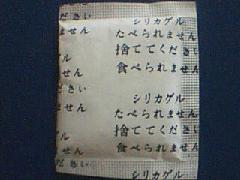 ださい
シリカゲル
ません
たべられません
捨ててください
ゲル
食べられません
せん
ださい
シリカゲル
ません
たべられません
捨ててください
ゲル
食べられません
せん
ださい
シリカゲル